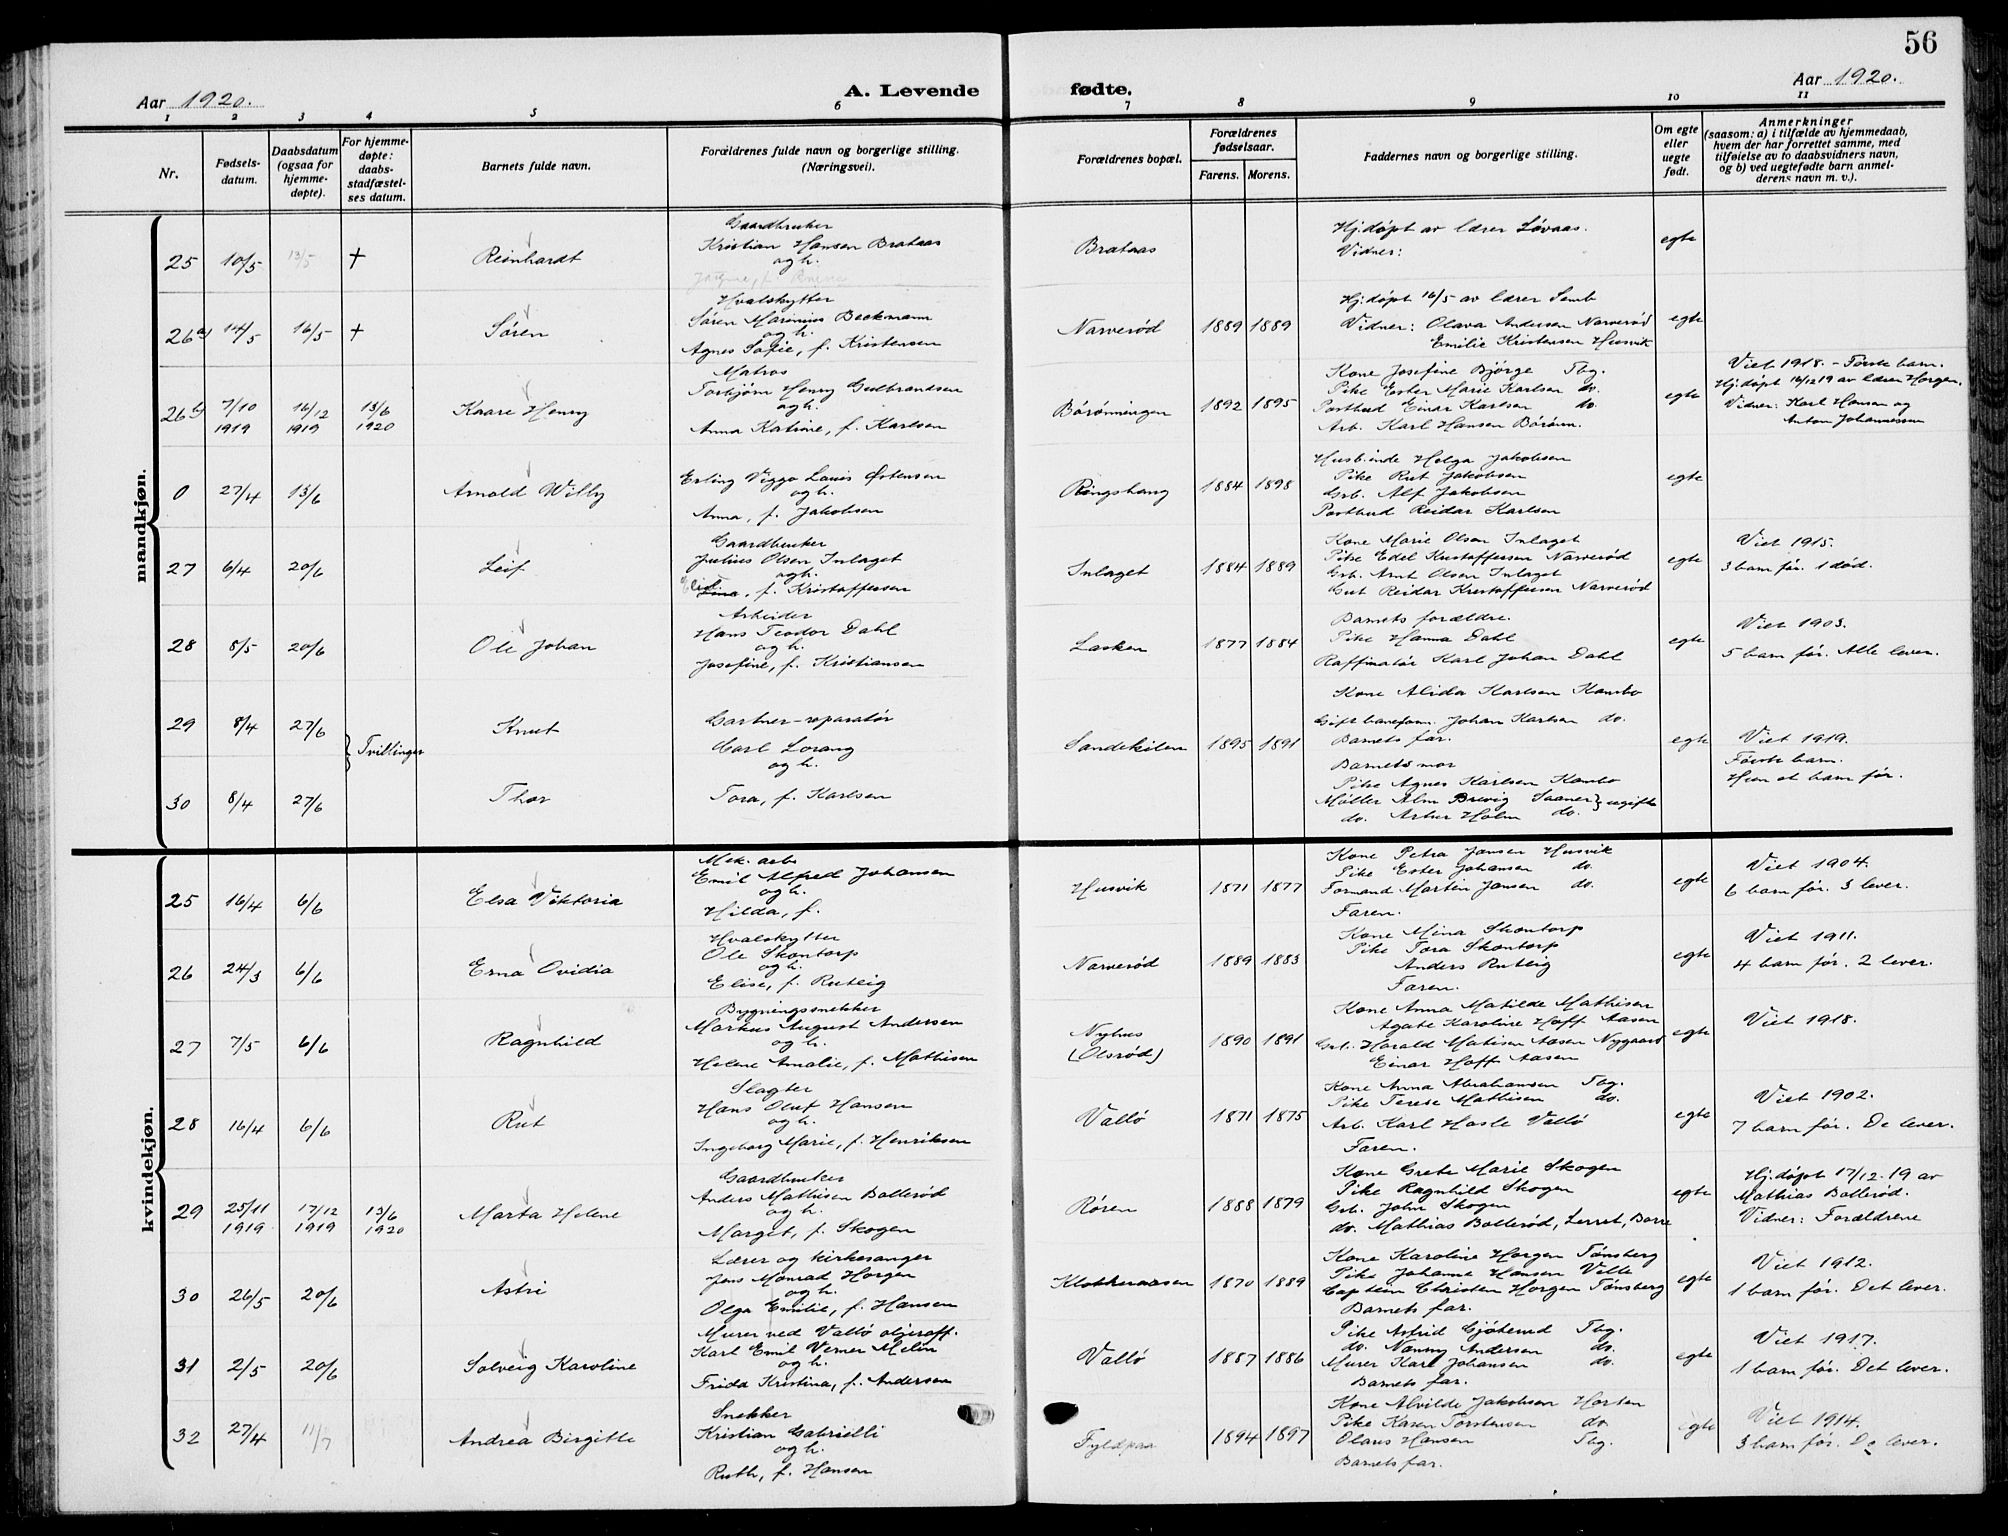 56
Aar 1920.
A. Levende fødte.
Aar 1920.
1 2 3 4 5 6 7 8 9 10 11
Nr.
Fødsels-
datum.
Daabsdatum
(ogsaa for
hjemme-
døpte).
For hjemme-
døpte:
daabs-
stadfæstel-
ses datum.
Barnets fulde navn.
Forældrenes fulde navn og borgerlige stilling.
(Næringsvei).
Forældrenes bopæl.
Forældrenes
fødselsaar.
Farens. Morens.
Faddernes navn og borgerlige stilling.
Om egte
eller
uegte
født.
Anmerkninger
(saasom: a) i tilfælde av hjemmedaab,
hvem der har forrettet samme, med
tilføielse av to daabsvidners navn,
og b) ved uegtefødte barn anmel-
derens navn m. v.).
mandkjøn.
25 10/5 13/5 + Reinhardt
Gaardbruker
Kristian Hansen Brataas
og h.
Brataas
Hj.døpt av lærer Løvaas.
Vidner:
egte
26a) 14/5 16/5 + Søren
Hvalskytter
Søren Marinius Beckmann
og h.
Agnes Sofie, f. Kristensen
Narverød 1889 1889
Hj.døpt 16/5 av lærer Semb
Vidner: Olava Andersen Narverød
Emilie Kristensen Husvik
egte
26b) 7/10 1919 16/12 1919 13/6 1920 Kaare Henry
Matros
Torbjørn Henry Gulbrandsen
og h.
Anna Katrine, f. Karlsen
Børønningen 1892 1895
Kone Josefine Bjørge Tbg.
Pike Ester Marie Karlsen do.
Postbud Einar Karlsen do.
Arb. Karl Hansen Børønn.
egte
Viet 1918 - Første barn.
Hj.døpt 16/12 19 av lærer Horgen.
Vidner: Karl Hansen og
Anton Johannessen
0 27/4 13/6 Arnold Willy
Erling Viggo Lauis Østensen
og h.
Anna, f. Jakobsen
Ringshaug 1884 1898
Husbinde Helga Jakobsen
Pike Rut Jakobsen
Grb. Alf Jakobsen
Postbud Reidar Karlsen
egte
27 6/4 20/6 Leif
Gaardbruker
Julius Olsen Inlaget
og h.
f. Kristoffersen
Inlaget 1884 1889
Kone Marie Olsen Inlaget
Pike Edel Kristoffersen Narverød
Grb. Arnt Olsen Inlaget
Gut Reidar Kristoffersen Narverød
egte
Viet 1915.
3 barn før. 1 død.
28 8/5 20/6 Ole Johan
Arbeider
Hans Teodor Dahl
og h.
Josefine, f. Kristiansen
Lasken 1877 1884
Barnets forældre.
Pike Hanna Dahl
Raffinatør Karl Johan Dahl
egte
Viet 1903.
5 barn før. Alle lever.
29 8/4 27/6 Knut
} Tvillinger
30 8/4 27/6 Thor
Gartner-reparatør
Carl Lorang
og h.
Tora, f. Karlsen
Sandekilen 1895 1891
Kone Alida Karlsen Kambo
Gift baneform. Johan Karlsen do.
Barnets far.
Barnets mor
Pike Agnes Karlsen Kambo
Møller Alm Brevig Saaner } ugift
do. Artur Holm do.
egte
Viet 1919.
Første barn.
Hun et barn før.
kvindekjøn.
25 16/4 6/6 Elsa Viktoria
Mek. arb.
Emil Alfred Johansen
og h.
Hilda, f.
Husvik 1871 1877
Kone Petra Jansen Husvik
Pike Ester Johansen do.
Formand Martin Jansen do.
Faren.
egte
Viet 1904.
6 barn før. 3 lever.
26 24/3 6/6 Erna Ovidia
Hvalskytter
Ole Skontorp
og h.
Elise, f. Ruteig
Narverød 1889 1883
Kone Mina Skontorp
Pike Tora Skontorp
Anders Ruteig
Faren.
egte
Viet 1911.
4 barn før. 2 lever.
27 7/5 6/6 Ragnhild
Bygningssnekker
Markus August Andersen
og h.
Helene Amalie, f. Mathisen
Nyhus
(Olsrød)
1890 1891
Kone Anna Matilde Mathisen
Agate Karoline Hoff Aasen
Grb. Harald Matisen Aasen Nygaard
Einar Hoff Aasen
egte
Viet 1918.
28 16/4 6/6 Rut
Slagter
Hans Oluf Hansen
og h.
Ingeborg Marie, f. Henriksen
Vallø 1871 1875
Kone Anna Abrahamsen Tbg.
Pike Terese Mathisen do.
Arb. Karl Hasle Vallø
Faren.
egte
Viet 1902.
7 barn før. De lever.
29 25/11 1919 17/12 1919 13/6 1920 Marta Helene
Gaardbruker
Anders Mathisen Bollerød
og h.
Marget, f. Skogen
Røren 1888 1879
Kone Grete Marie Skogen
Pike Ragnhild Skogen
Grb. John Skogen
do. Mathias Bollerød, Lerret, Borre
egte
Hj.døpt 17/12.19 av
Mathias Bollerød.
Vidner: Forældrene
30 26/5 20/6 Astri
Lærer og kirkesanger
Jens Monrad Horgen
og h.
Olga Emilie, f. Hansen
Klokkeraasen 1870 1889
Kone Karoline Horgen Tønsberg
Pike Johanna Hansen Velle
Captein Christen Horgen Tønsberg
Barnets far.
egte
Viet 1912.
1 barn før. Det lever.
31 2/5 20/6 Solveig Karoline
Murer ved Vallø oljeraff.
Karl Emil Verner Melin
og h.
Frida Kristina, f. Andersen
Vallø 1887 1886
Pike Astrid Gjøterud Tbg.
do. Nanny Andersen do.
Murer Karl Johansen do.
Barnets far.
egte
Viet 1917.
1 barn før. Det lever.
32 27/4 11/7 Andrea Birgitte
Snekker
Kristian Gabrielli
og h.
Ruth, f. Hansen
Fyldpaa 1894 1897
Kone Alvilde Jakobsen Horten
Pike Karen Torstensen do
Olaus Hansen Tbg.
Barnets far.
egte
Viet 1914.
3 barn før. De lever.